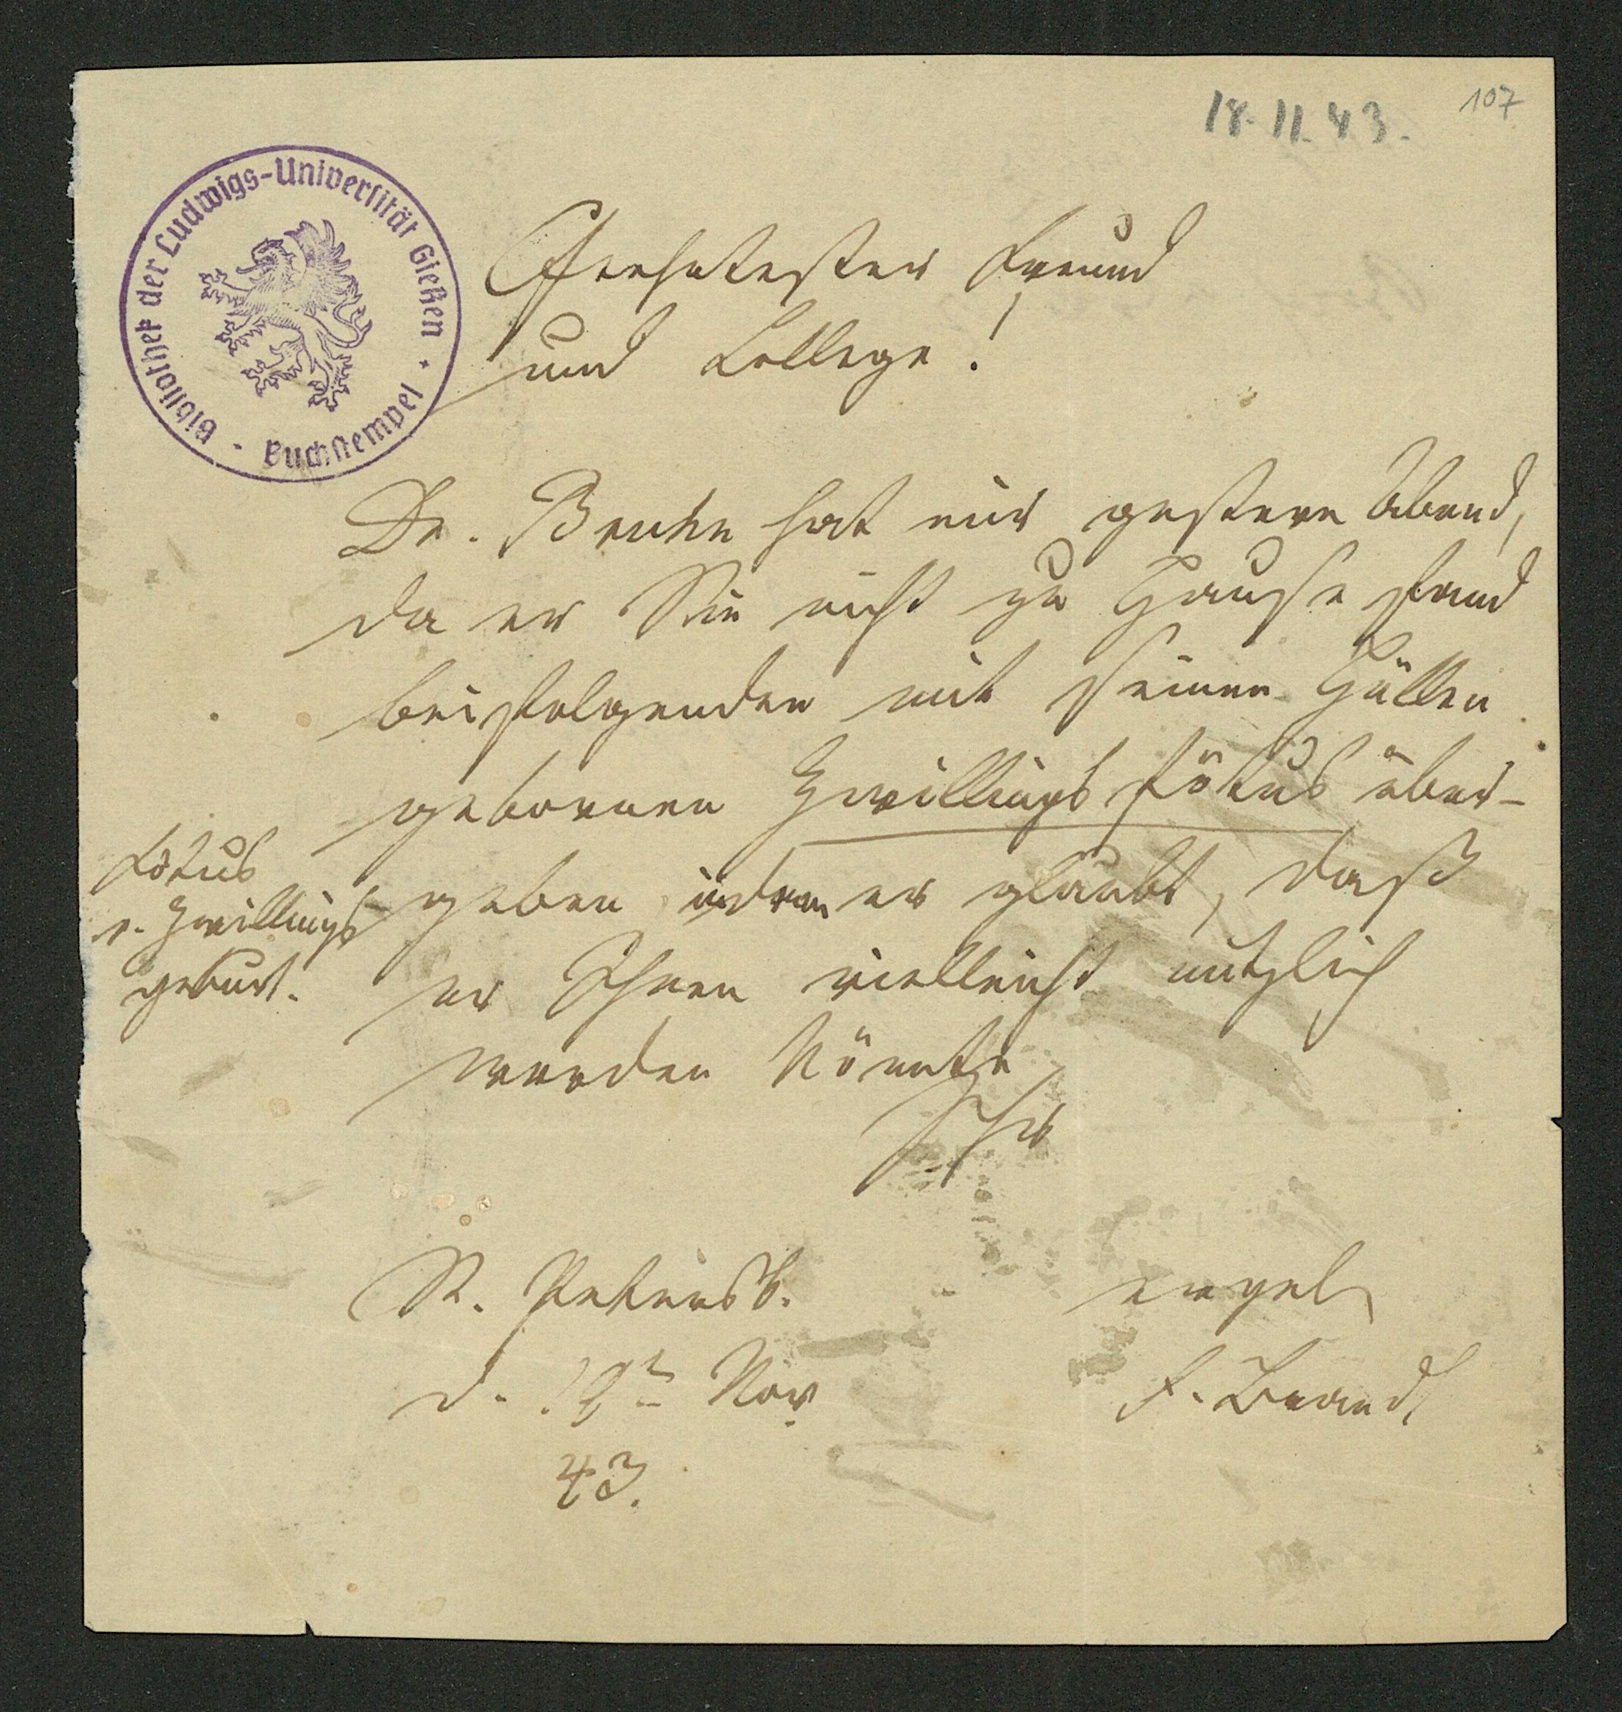 18.11.43.
107
Bibliothek der Ludwigs-Universität Gießen · Buchstempel ·
Geehrtester Freund
und College!
Dr. Bruhn hat mir gestern Abend,
da er Sie nicht zu Hause fand
beifolgenden mit seinen Hüllen
gebornen Zwillingsfötus über-
geben indem er glaubt, daß
er Ihnen vielleicht nützlich
werden könnte
Ihr
Fötus
e. Zwillings
geburt.
St. Petersb.
d. 18t Nov
43.
F. Brandt